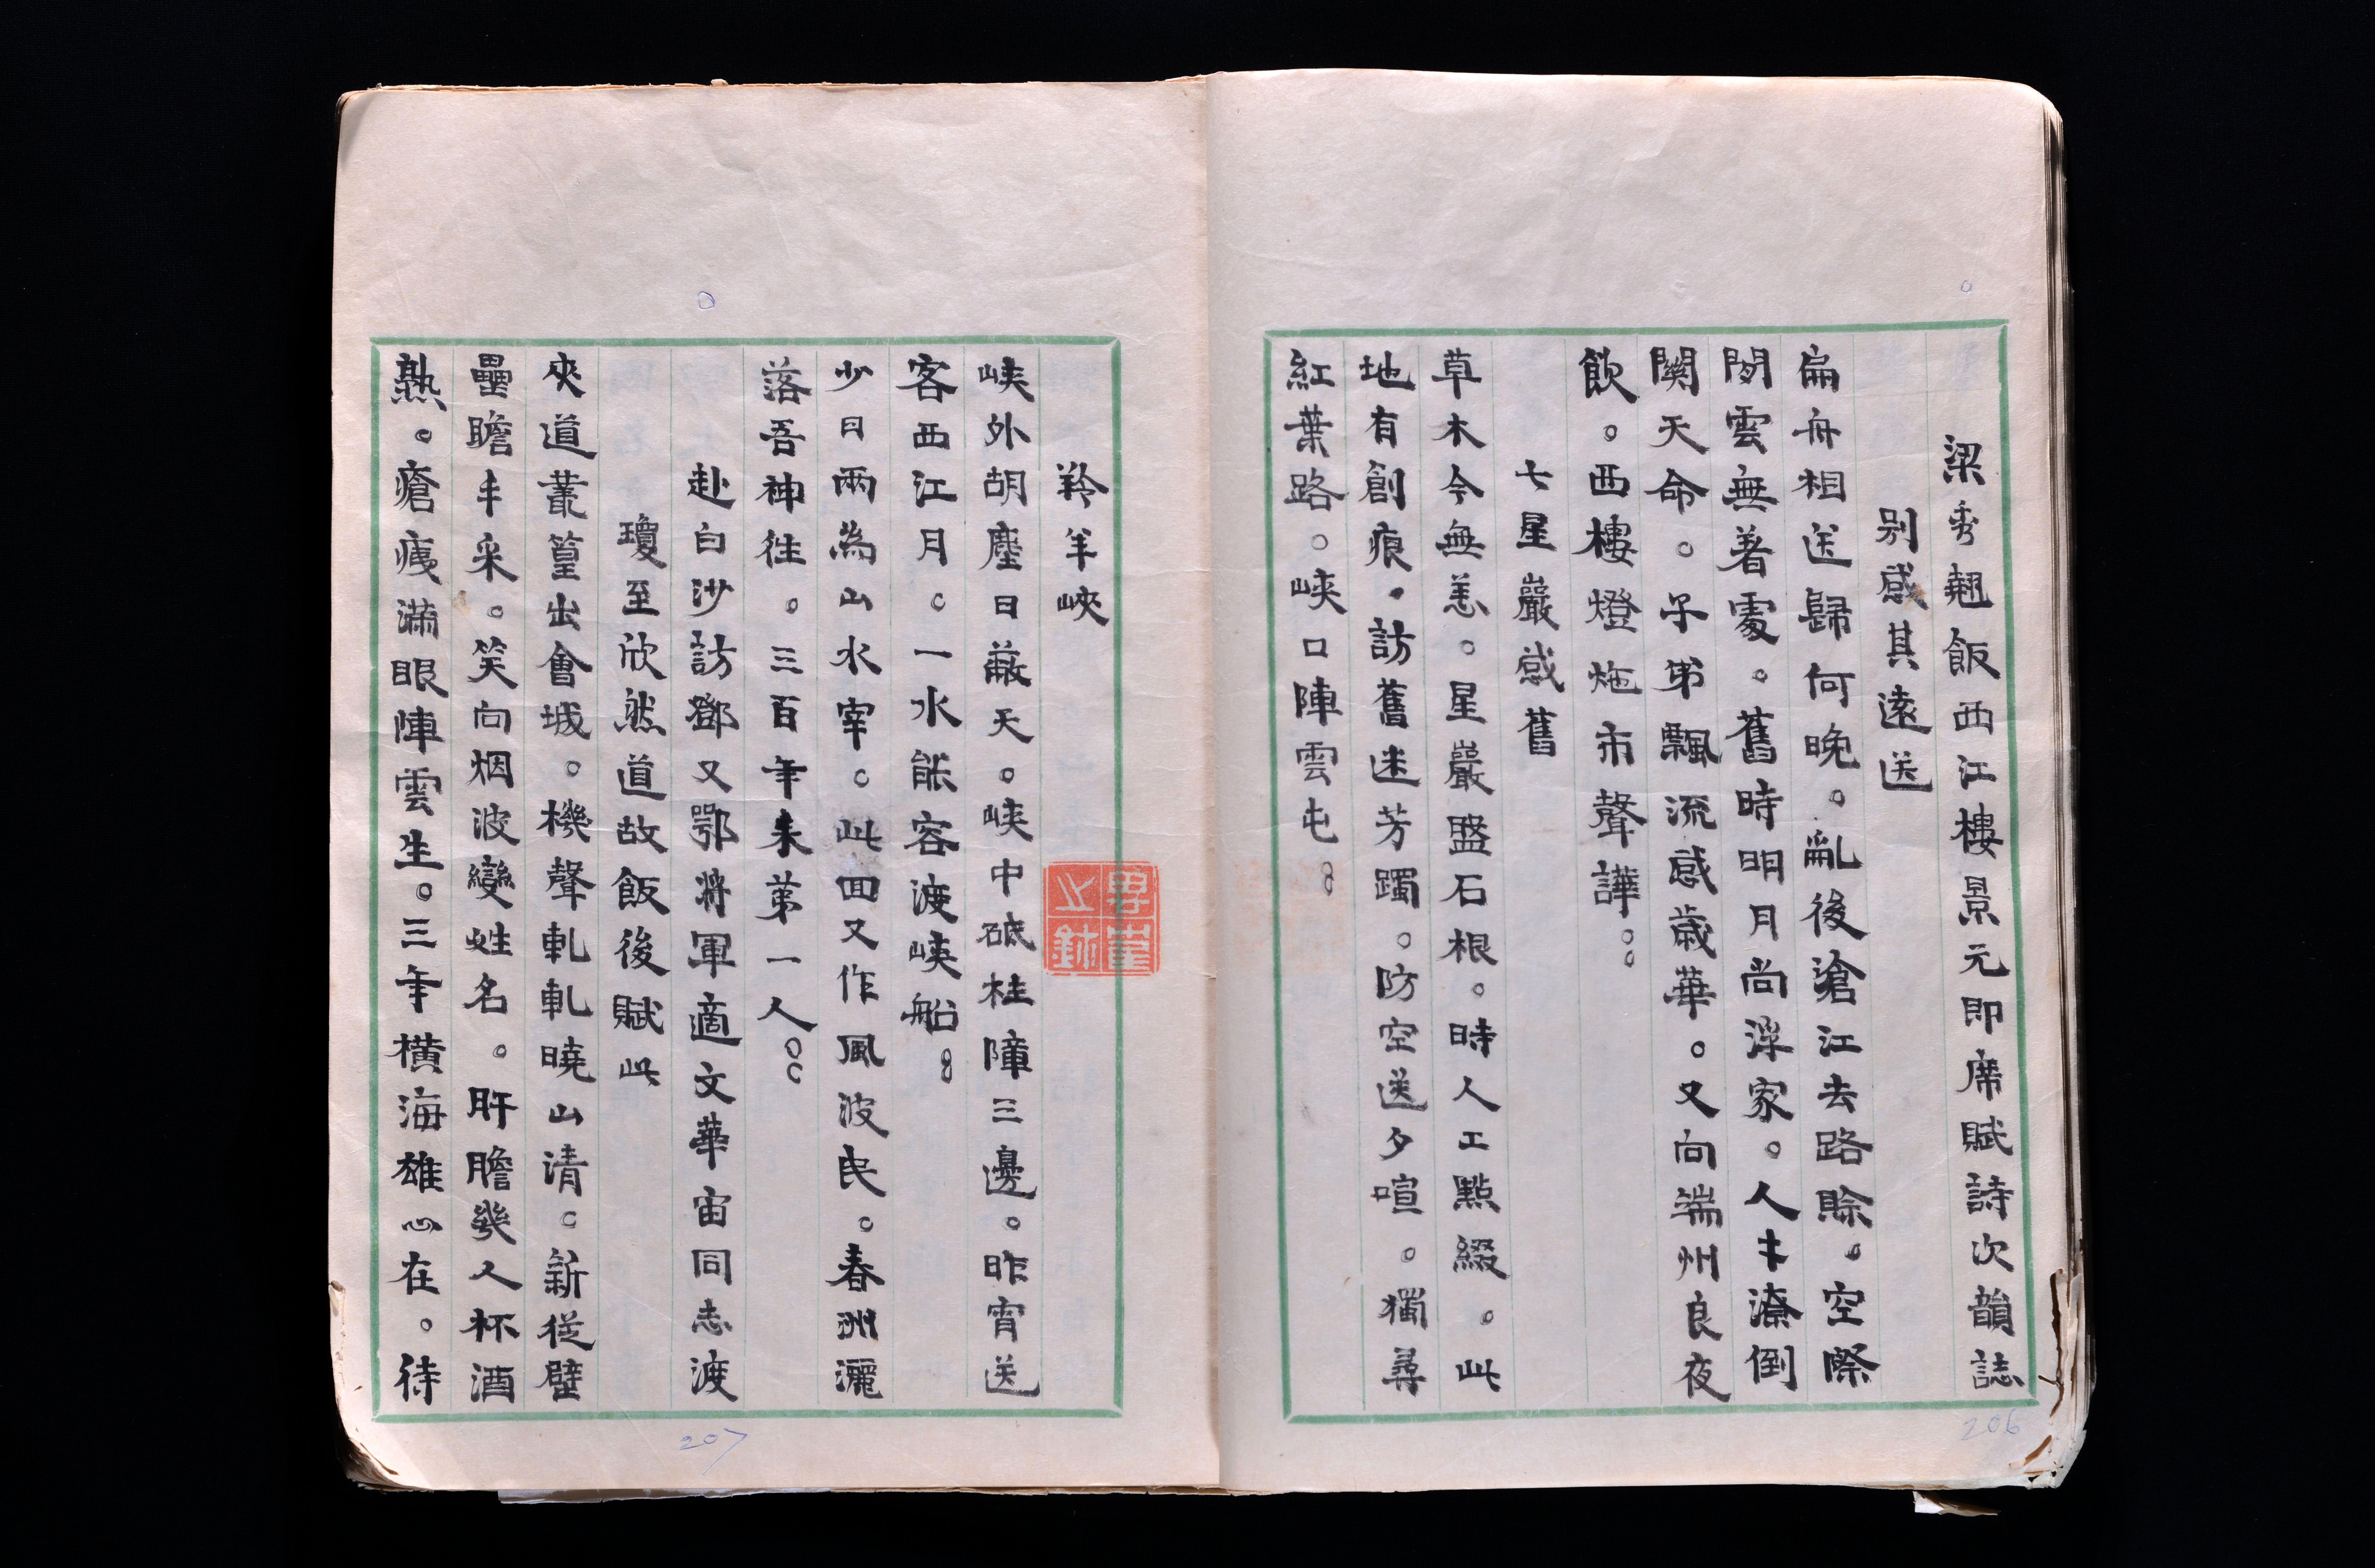 梁秀翹飯西江樓景元即席賦詩次韻誌
别感其遠送
扁舟相送歸何晚。亂後滄江去路賒。空際
閒雲無著處。舊時明月尚浮家。人才潦倒
関天命。子弟飄流感歲華。又向端州良夜
飲。西樓燈炧市聲譁。。
七星巖感舊
草木今無恙。星巖盤石根。時人工點綴。此
地有創痕。訪舊迷芳躅。防空送夕喧。獨尋
紅葉路。峽口陣雲屯。。
206
羚羊峽
峽外胡塵日蔽天。峽中砥柱障三邊。昨宵送
客西江月。一水能容渡峽船。。
少日兩為山水宰。此回又作風波民。春洲灑
落吾神往。三百年来第一人。。
赴白沙訪鄧又鄂將軍適文華宙同志渡
瓊至欣然道故飯後賦此
夾道叢篁出會城。機聲軋軋曉山清。新從壁
壘瞻丰采。笑向烟波變姓名。肝膽幾人杯酒
熟。瘡痍滿眼陣雲生。三年横海雄心在。待
207